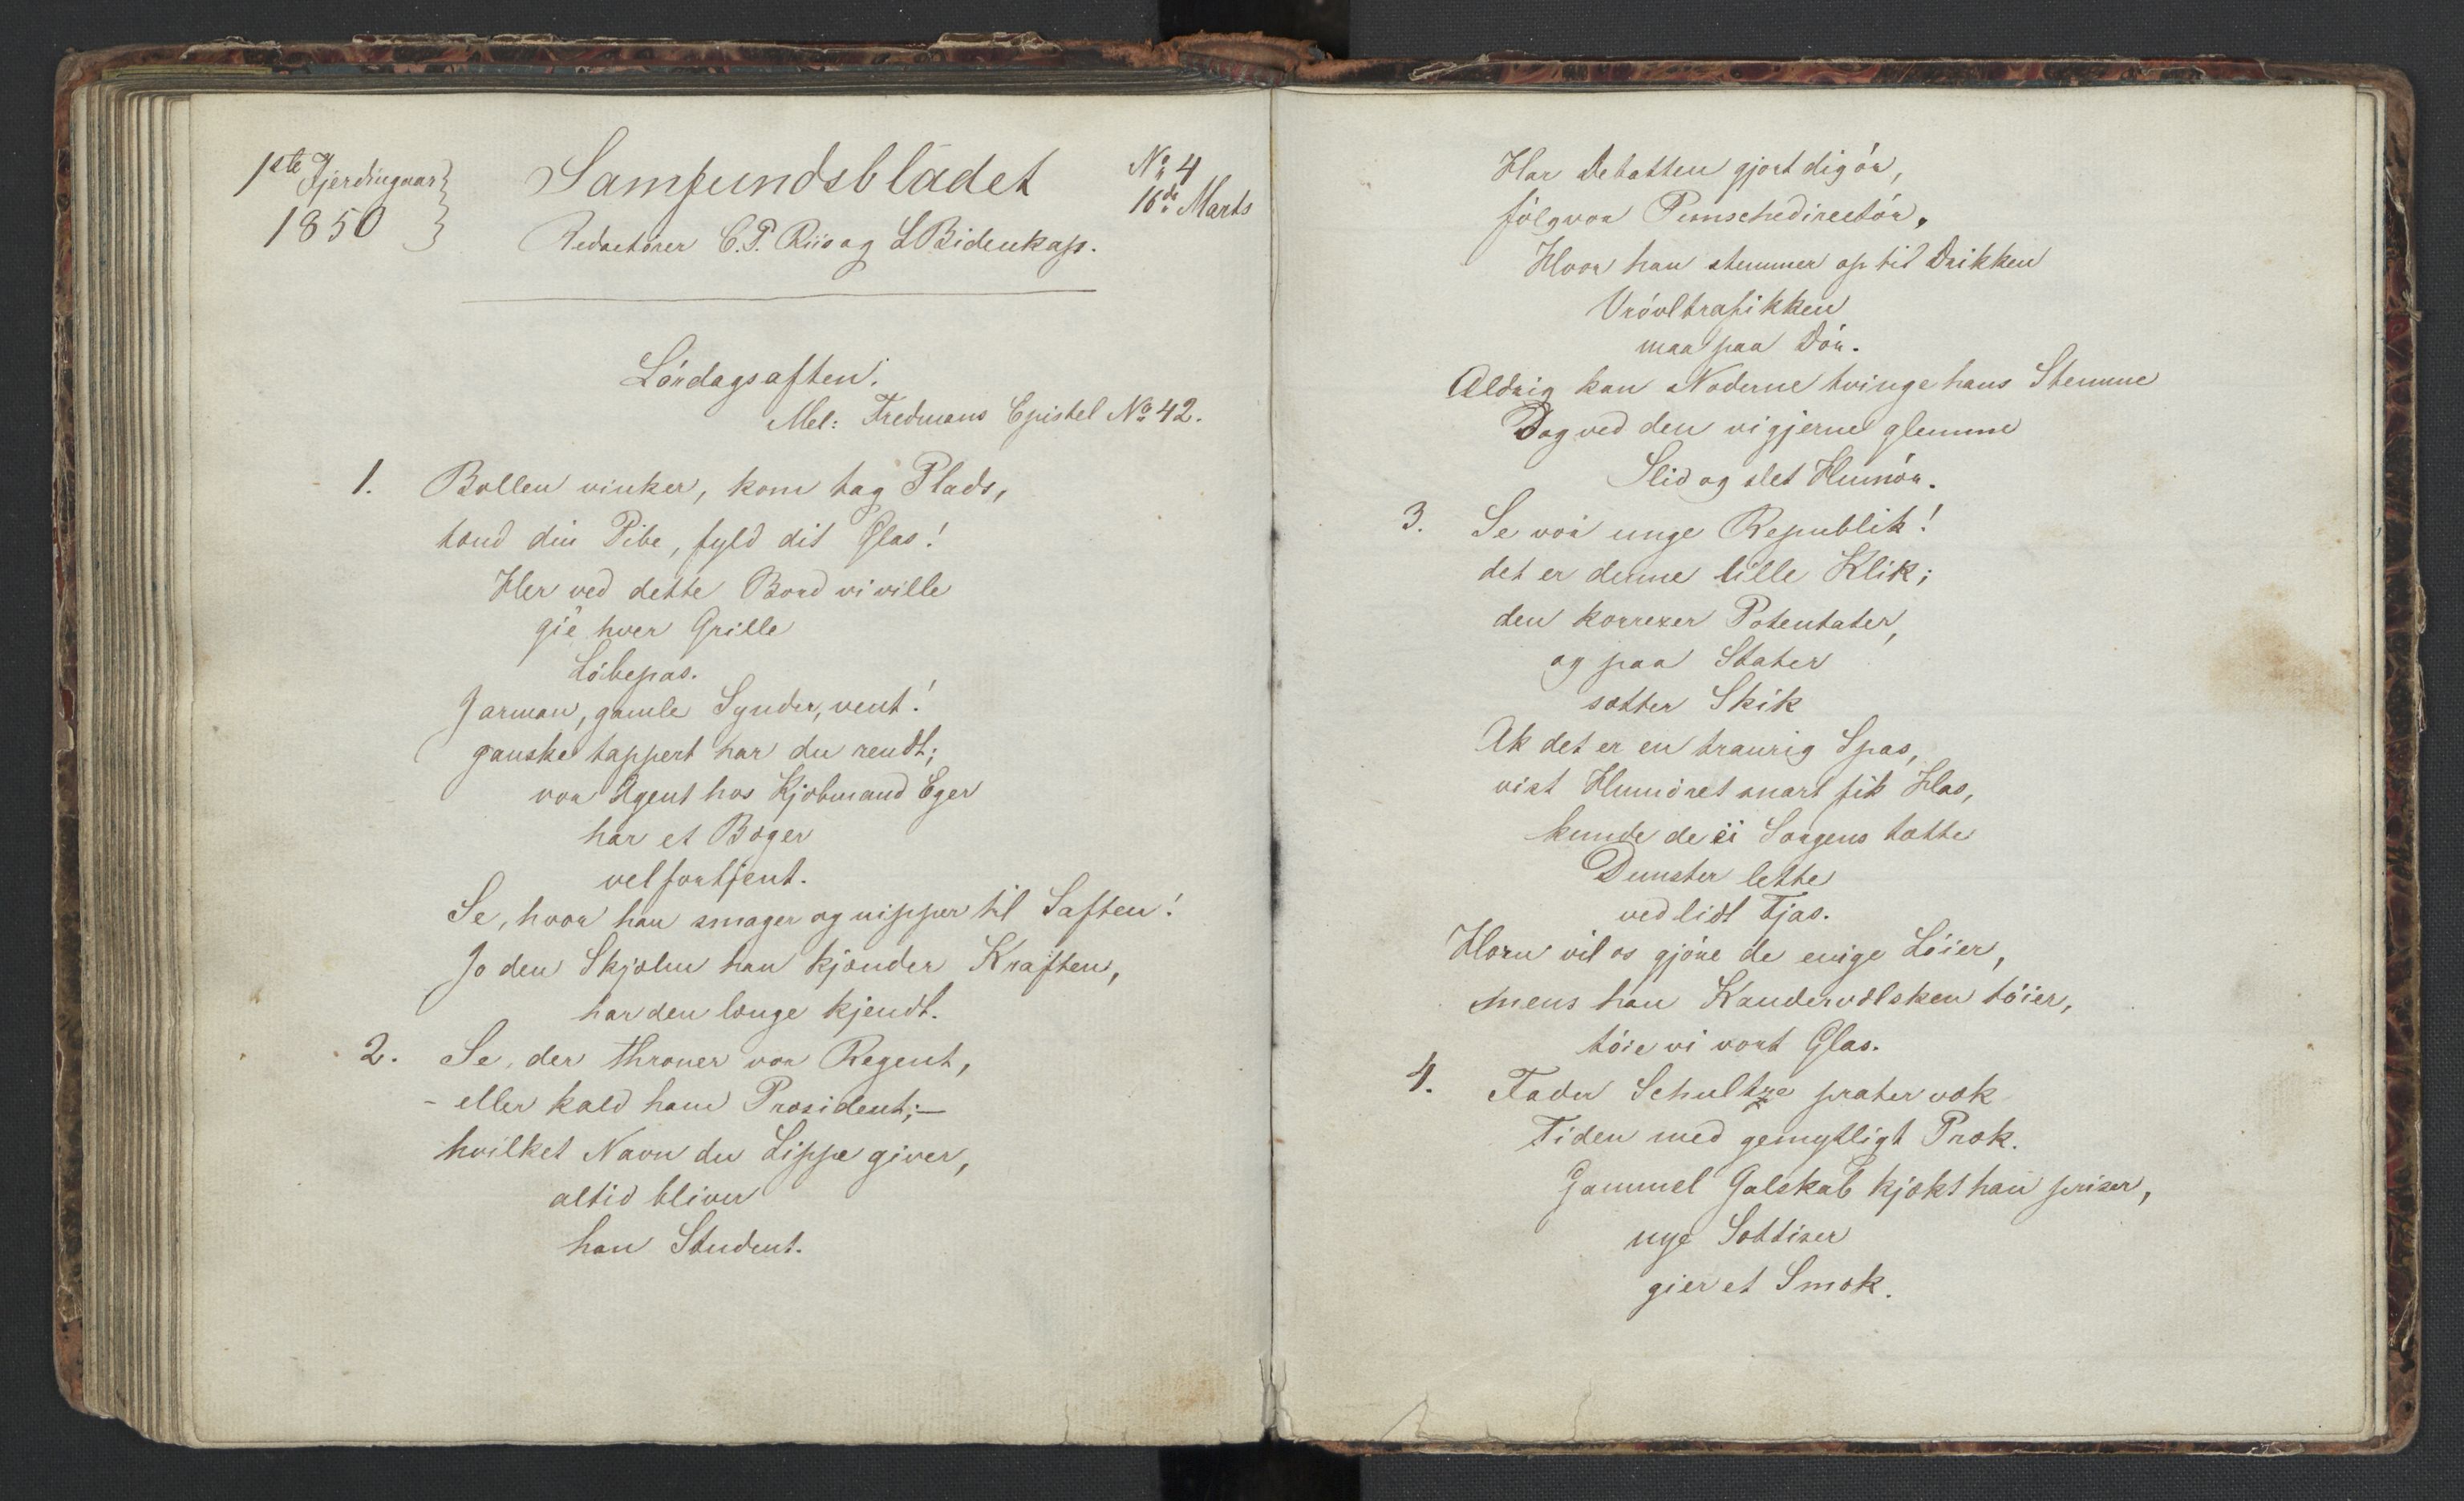 1ste Fjerdingaar
1850
Samfundsbladet
No 4
16de Marts
Redactører C.P. Riis og L Bidenkap.
Lørdagsaften.
Mel: Fredmans Epistel No 42.
1. Bollen vinker, kom tag Plads,
tænd din Pibe, fyld dit Glas!
Her ved dette Bord vi ville
gie hver Grille
Løbepas.
Jarman, gamle Synder, vent!
ganske tappert har du rendt;
vor Agent hos Kjøbmand Eger
har et Bæger
vel fortjent.
Se, hvor han smager og nipper til Saften!
Jo den Skjælm han kjænder Kraften,
har den længe kjendt.
2. Se, der throner vor Regent,
- eller kald ham Præsident; —
hvilket Navn du Lippe giver,
altid bliver
han Student.
Har Debatten gjort dig ør,
følg vor Punschedirectør,
Hvor han stemmer op til Drikken
Vrøvltrafikken
maa paa Dør.
Aldrig kan Noderne tvinge hans Stemme
Dog ved den vi gjerne glemme
Slid og slet Humør.
3. Se vor unge Republik!
det er denne lille Klik;
den korrexer Potentater,
og paa Stater
sætter Skik
Ak det er en traurig Spas,
vist Humøret snart fik Has,
kunde de ei Sorgens tætte
Dunster lette
ved lidt Fjas.
Horn vil os gjøre de enige Løier,
mens han Kandervælsken tøier,
tøie vi vort Glas.
4. Fader Schultze prater væk
Tiden med gemytligt Præk.
Gammel Galskab kjækt han priser,
nye Sottiser
gier et Smæk.